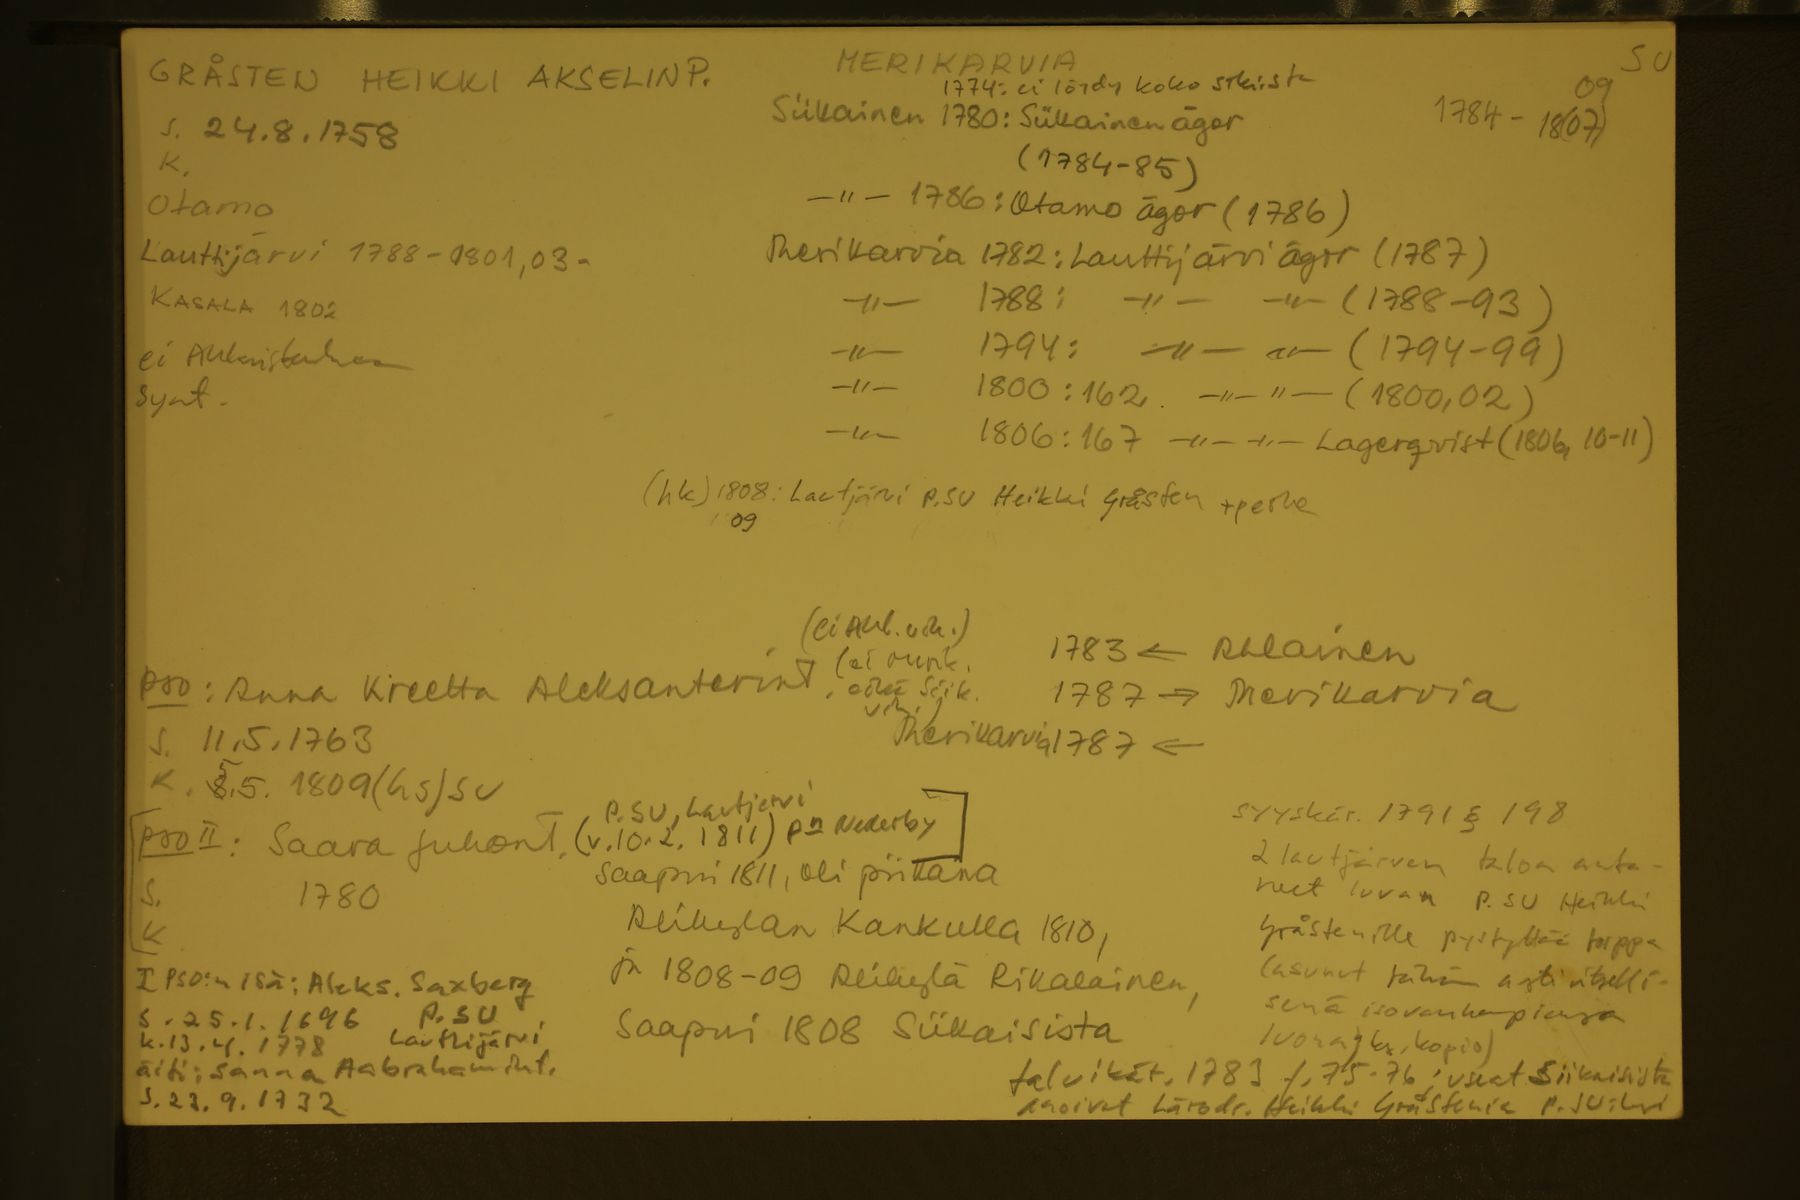 GRÅSTEN HEIKKI AKSELINP.
MERIKARVIA
SU
1774: ei löydy koko srk:sta
09
s. 24.8.1758
Siikainen 1780: Siikainen ägor
1784 - 18(07)
(1784-85)
K.
Otamo
-"- 1786: Otamo ägor (1786)
Lauttijärvi 1788-1801, 03-
Merikarvia 1782: Lauttijärvi ägor (1787)
KASALA 1802
-"- 1788: -"- -"- (1788-93)
ei Ahlaisten
-"- 1794: -"- -"- (1794-99)
synt.
-"- 1800: 162 -"- "- (1800,02)
-"- 1806: 167 -"- -"- Lagerqvist (1806, 10-11)
(hk) 1808: Lautjärvi p.SU Heikki Gråsten + perhe
09
(ei Ahl. vih.)
1783 ← Ahlainen
PSO: Anna Kreetta Aleksanterint.
(ei merik.
eikä Siik.
vih.)
1787 → Merikarvia
Merikarvia 1787 ←
s. 11.5.1763
K. 5.5. 1809 (hs) SU
P.SU, Lautjervi
PSO II: Saara Juhont. (v. 10.2. 1811) pn Nederby
saapui 1811, oli piikana
s. 1780
Ahlkylän Kankulla 1810,
K
ja 1808-09 Ahlkylä Rikalainen,
saapui 1808 Siikaisista
I PSO:n isä: Aleks. Saxberg
s. 25.1. 1696 P.SU
k. 13.4. 1778 Lauttijärvi
äiti: Sanna Aabrahamint.
s. 23.9.1732
syyskär. 1791 § 198
2 lautjärven taloa anta-
neet luvan p.SU Heikki
Gråstenille pystyttää torppa
(asunut tähän asti itselli-
senä isovanhempiensa
luona) ks. kopio)
talvikär. 1783 f. 75-76: useat Siikaisista
anoivat Lärodr. Heikki Gråstenia p.SU:ksi